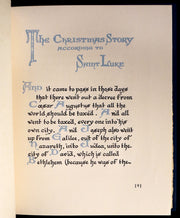 The Christmas Story
according to
Saint Luke
And it came to pass in those days
that there went out a decree from
Cæsar Augustus that all the
world should be taxed. And all
went to be taxed, every one into his
own city. And Joseph also went
up from Galilee, out of the city of
Nazareth, into Judea, unto the
city of David, which is called
Bethlehem (because he was of the